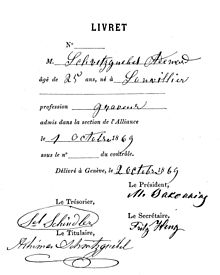 LIVRET
N°
M. Schwitzguebel Adhémar
âgé de 25 ans, né à Sonvillier
profession graveur
admis dans la section de l'Alliance
le 1 Octobre 1869
sous le n° du contrôle.
Délivré à Genève, le 2 octobre 1869
Le Président,
M. Bakounine
Le Trésorier,
Le Secrétaire,
Schindler
Fritz Heng
Le Titulaire,
Adhémar Schwitzguebel